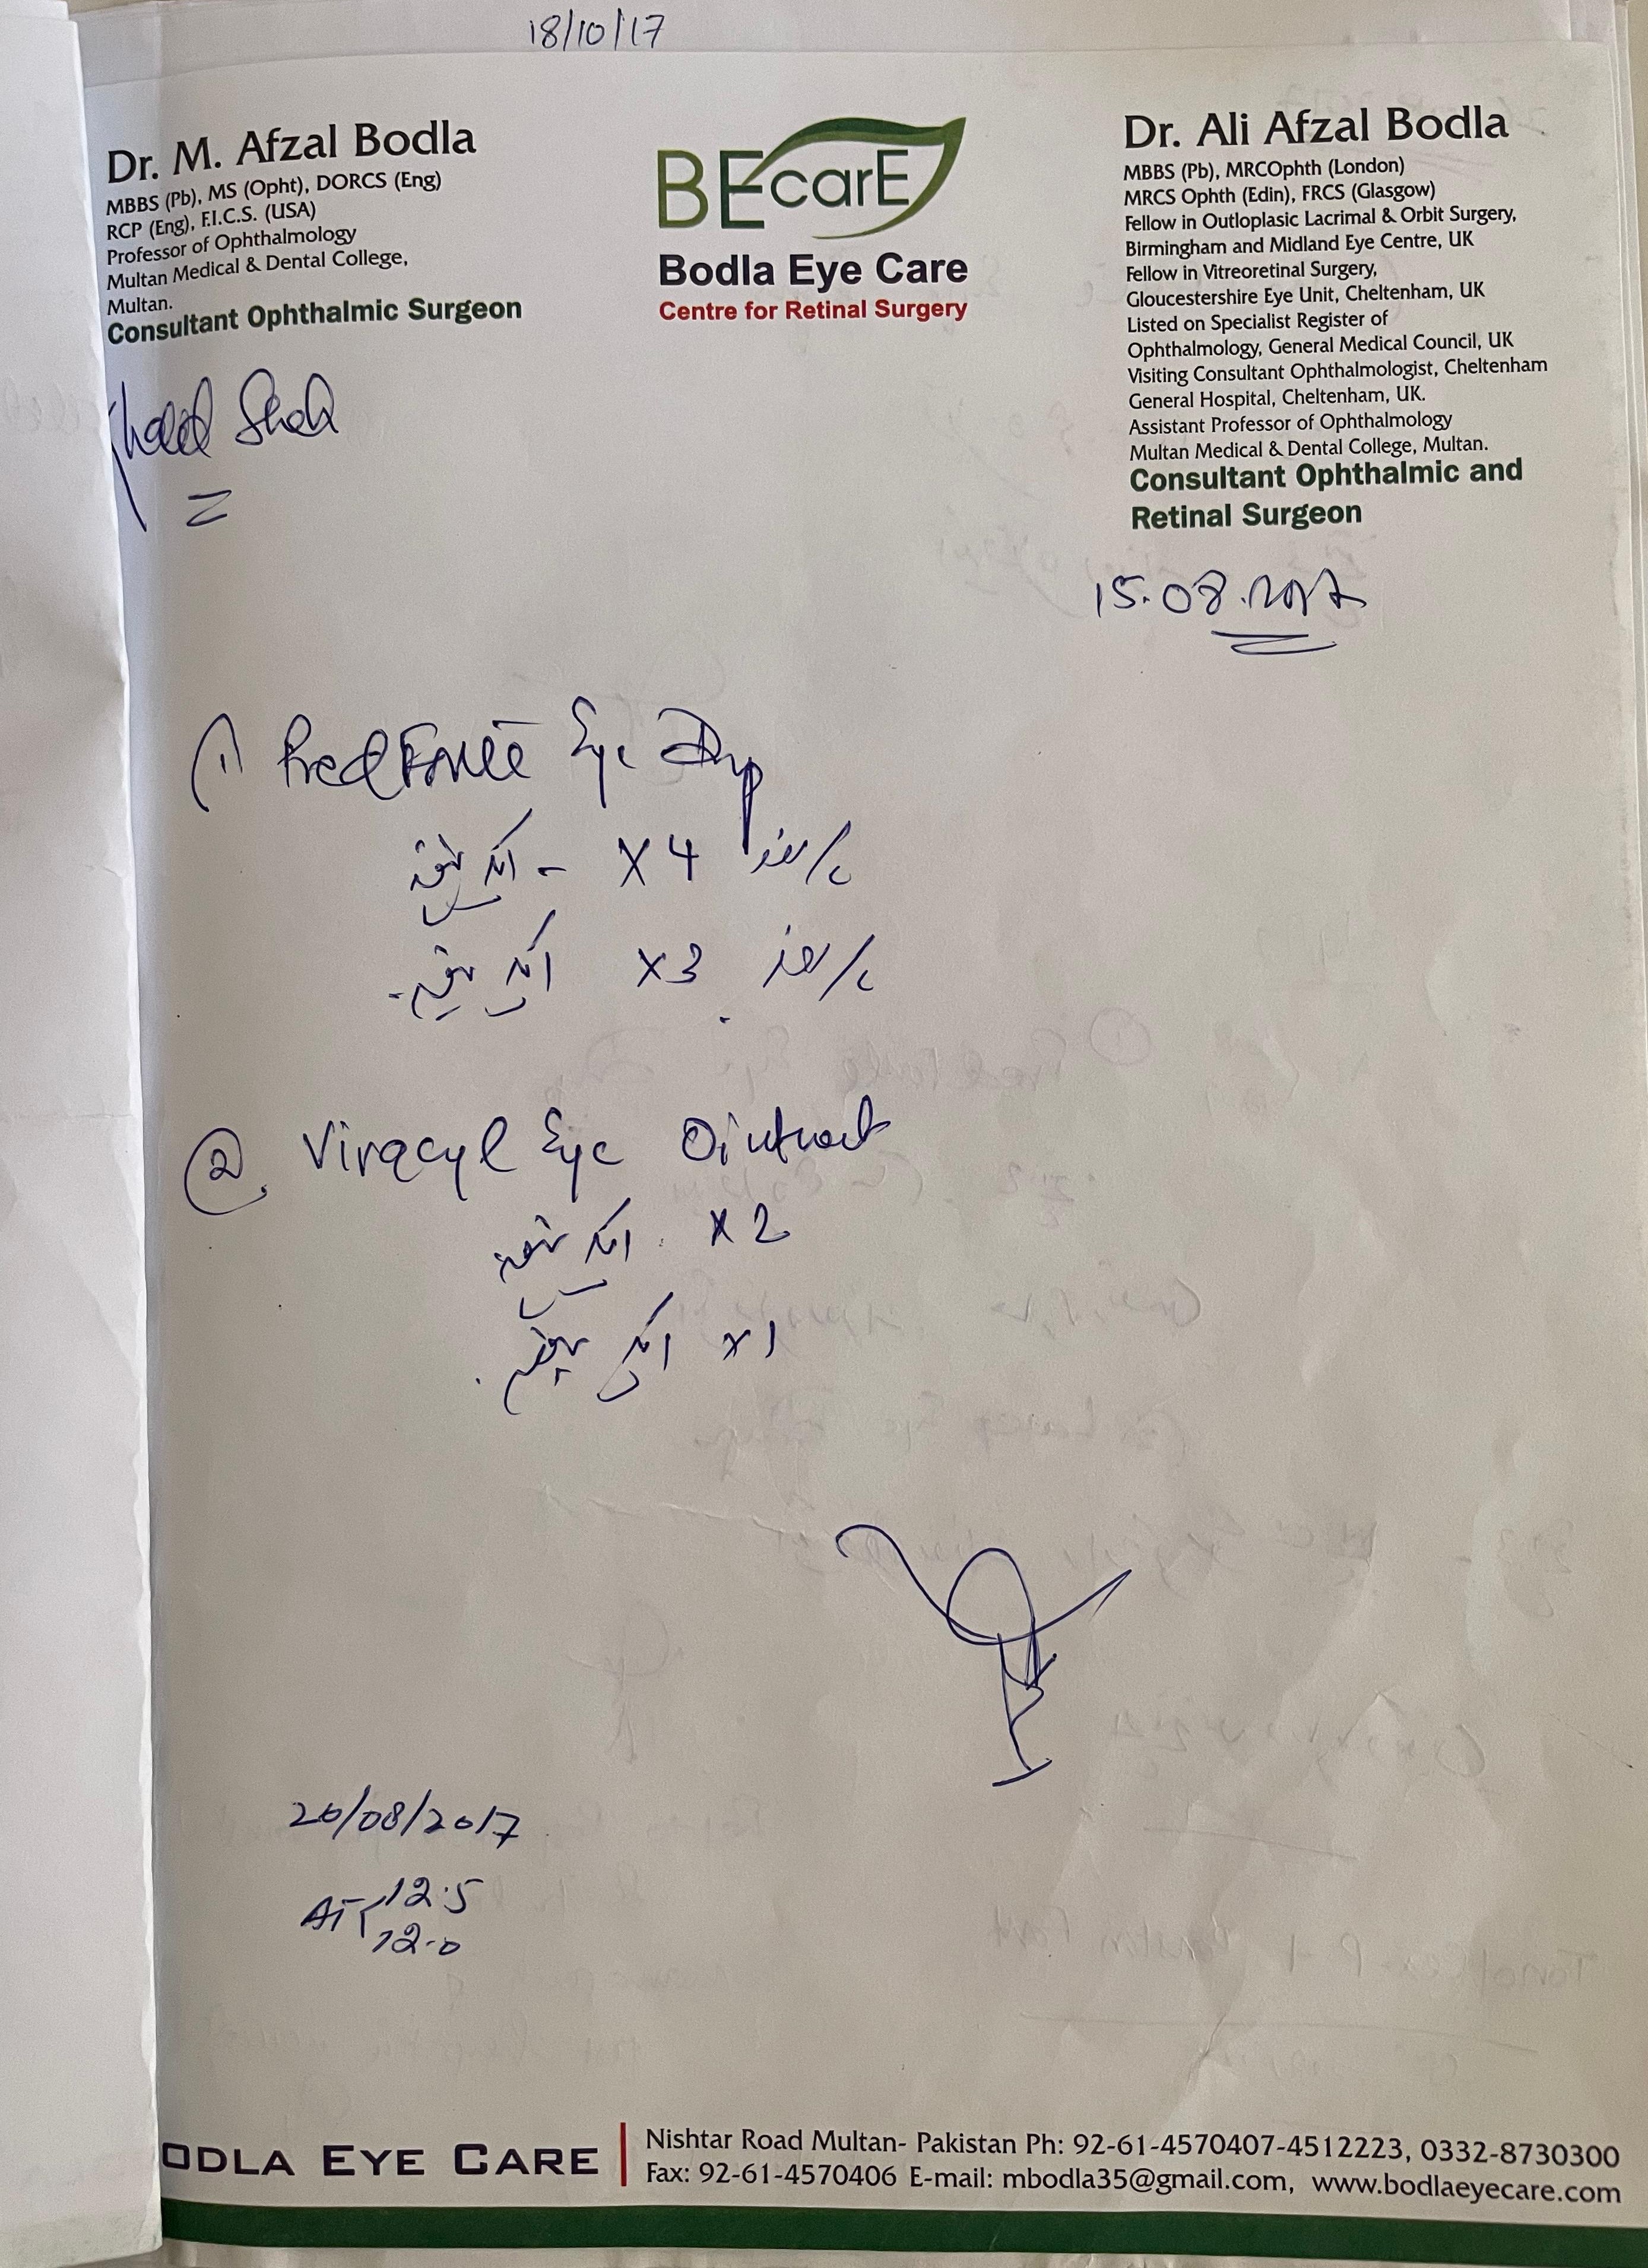 18/10/17
Dr. M. Afzal Bodla
MBBS (Pb), MS (Opht), DORCS (Eng)
RCP (Eng), F.I.C.S. (USA)
Professor of Ophthalmology
Multan Medical & Dental College,
Multan.
Consultant Ophthalmic Surgeon
BEcarE
Bodla Eye Care
Centre for Retinal Surgery
Dr. Ali Afzal Bodla
MBBS (Pb), MRCOphth (London)
MRCS Ophth (Edin), FRCS (Glasgow)
Fellow in Outloplasic Lacrimal & Orbit Surgery,
Birmingham and Midland Eye Centre, UK
Fellow in Vitreoretinal Surgery,
Gloucestershire Eye Unit, Cheltenham, UK
Listed on Specialist Register of
Ophthalmology, General Medical Council, UK
Visiting Consultant Ophthalmologist, Cheltenham
General Hospital, Cheltenham, UK.
Assistant Professor of Ophthalmology
Multan Medical & Dental College, Multan.
Consultant Ophthalmic and
Retinal Surgeon
Shah
15.08.2017
1) Pred Forte Eye Drop
X 4 ایک ہفتہ
X 3 ایک ہفتہ
2 Viracyl Eye Ointment
ایک ہفتہ X 2
ایک ہفتہ X 1
20/08/2017
AT 12.5
12.0
ODLA EYE CARE
Nishtar Road Multan- Pakistan Ph: 92-61-4570407-4512223, 0332-8730300
Fax: 92-61-4570406 E-mail: mbodla35@gmail.com, www.bodlaeyecare.com